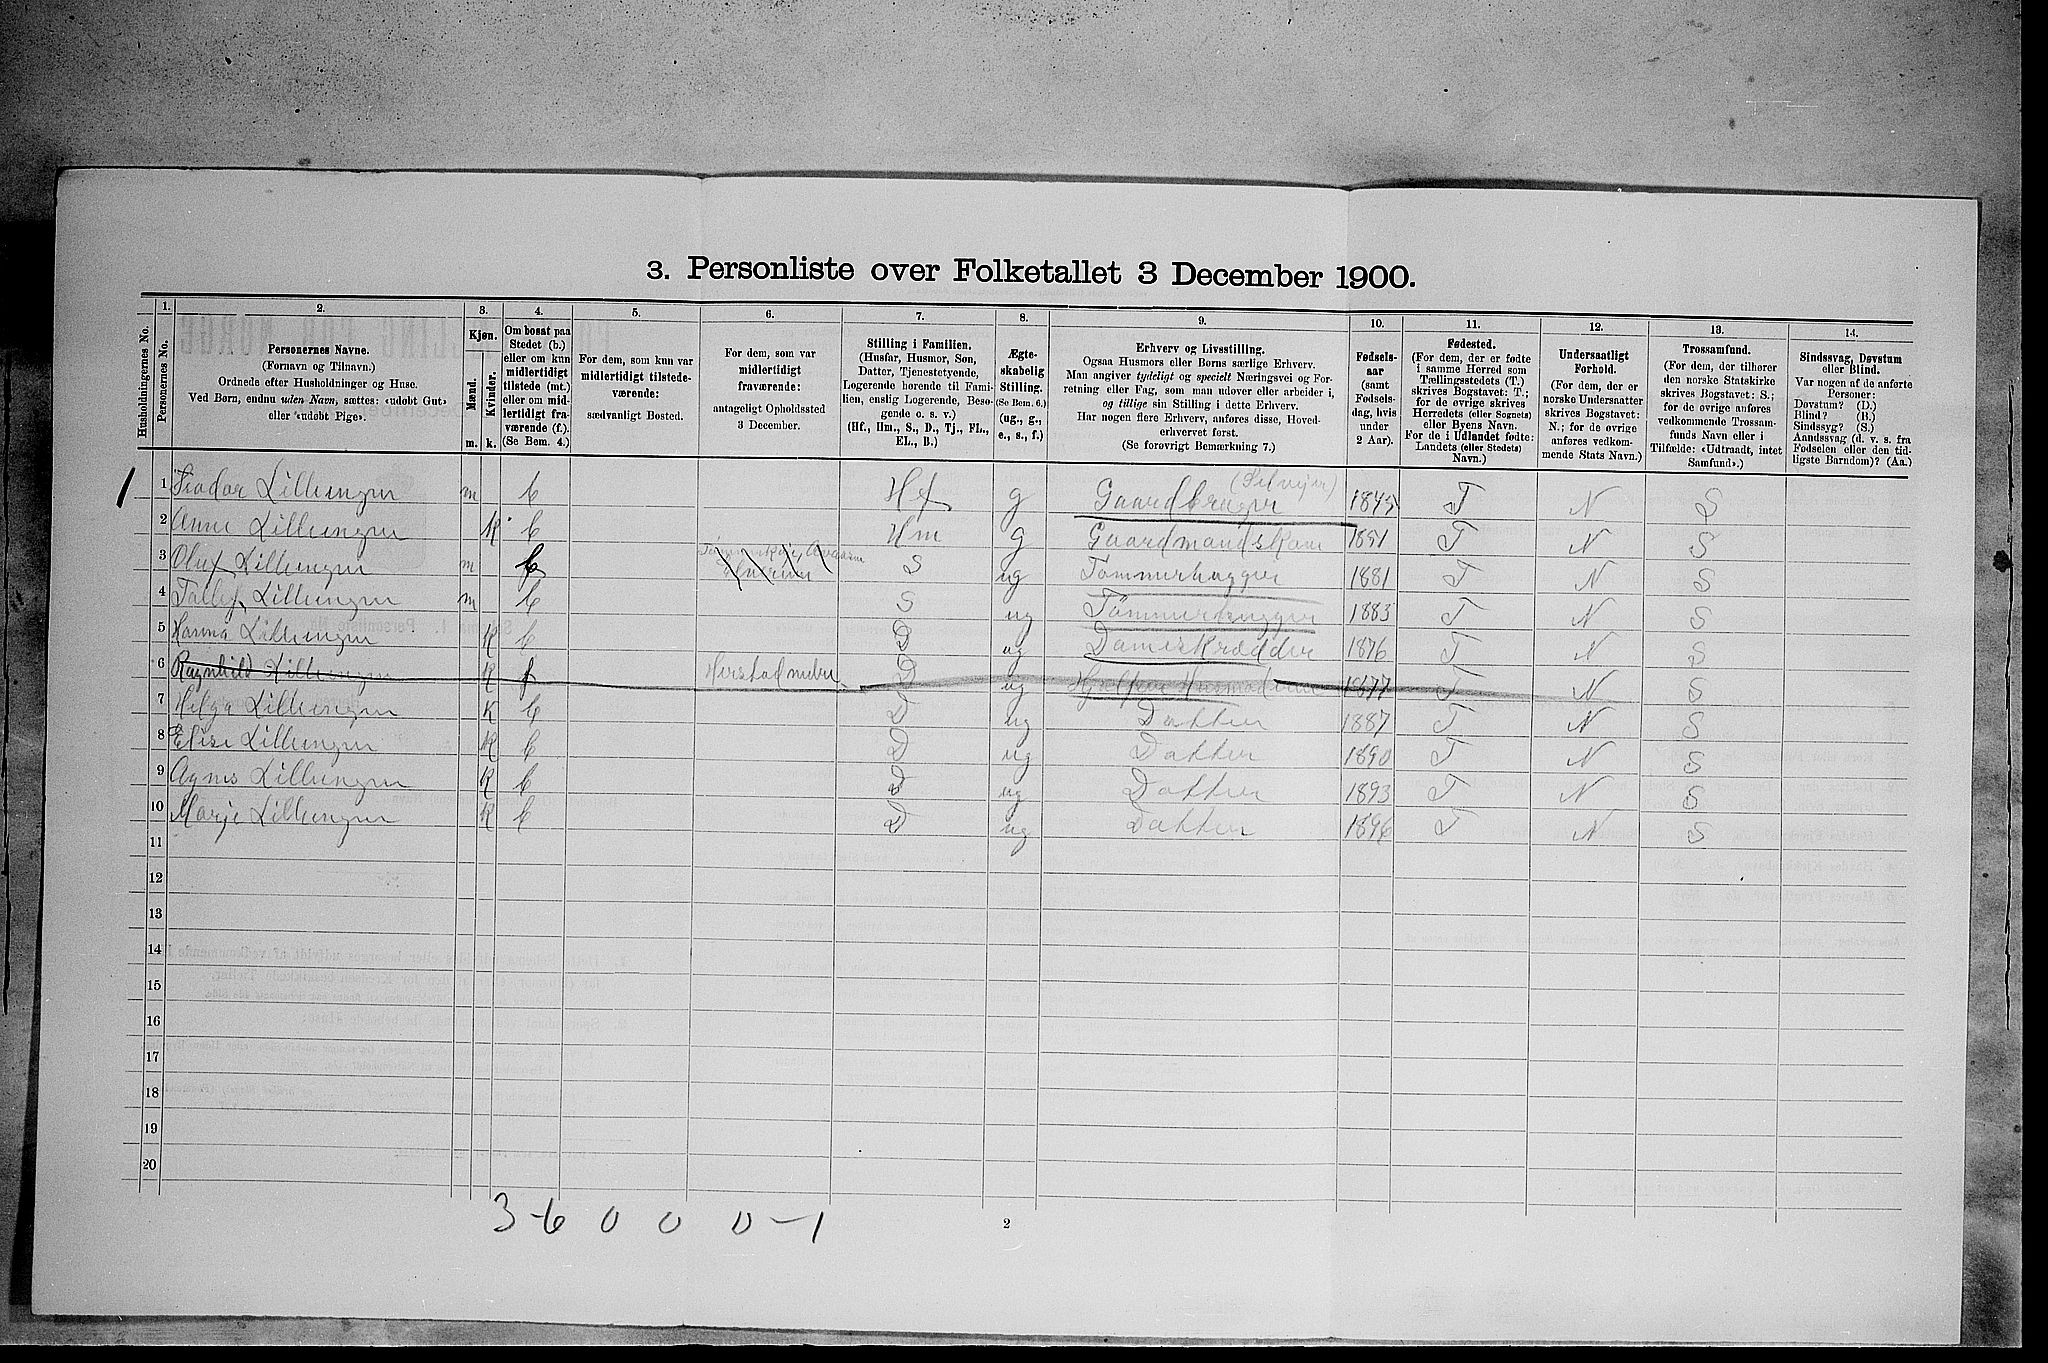 3. Personliste over Folketallet 3 December 1900.
Husholdningernes No.
1.
Personernes No.
2.
Personernes Navne.
(Fornavn og Tilnavn.)
Ordnede efter Husholdninger og Huse.
Ved Børn, endnu uden Navn, sættes: «udøbt Gut»
eller «udøbt Pige».
3.
Kjøn.
Mænd.
Kvinder.
m.
k.
4.
Om bosat paa
Stedet (b.)
eller om kun
midlertidigt
tilstede (mt.)
eller om mid-
lertidigt fra-
værende (f.).
(Se Bem. 4.)
5.
For dem, som kun var
midlertidigt tilstede-
værende:
sædvanligt Bosted.
6.
For dem, som var
midlertidigt
fraværende:
antageligt Opholdssted
3 December.
7.
Stilling i Familien.
(Husfar, Husmor, Søn,
Datter, Tjenestetyende,
Logerende hørende til Fami-
lien, enslig Logerende, Besø-
gende o. s. v.)
(Hf., Hm., S., D., Tj., FL.,
EL., B.)
8.
Ægte-
skabelig
Stilling.
(Se Bem. 6.)
(ug., g.,
e., s., f.)
9.
Erhverv og Livsstilling.
Ogsaa Husmors eller Børns særlige Erhverv.
Man angiver tydeligt og specielt Næringsvei og For-
retning eller Fag, som man udøver eller arbeider i,
og tillige sin Stilling i dette Erhverv.
Har nogen flere Erhverv, anføres disse, Hoved-
erhvervet først.
(Se forøvrigt Bemærkning 7.)
10.
Fødsels-
aar
(samt
Fødsels-
dag, hvis
under
2 Aar).
11.
Fødested.
(For dem, der er fødte
i samme Herred som
Tællingsstedets (T.)
skrives Bogstavet: T.;
for de øvrige skrives
Herredets (eller Sognets)
eller Byens Navn.
For de i Udlandet fødte:
Landets (eller Stedets)
Navn.)
12.
Undersaatligt
Forhold.
(For dem, der er
norske Undersaatter
skrives Bogstavet:
N.; for de øvrige
anføres vedkom-
mende Stats Navn.)
13.
Trossamfund.
(For dem, der tilhører
den norske Statskirke
skrives Bogstavet: S.;
for de øvrige anføres
vedkommende Trossam-
funds Navn eller i
Tilfælde: «Udtraadt, intet
Samfund».)
14.
Sindssvag, Døvstum
eller Blind.
Var nogen af de anførte
Personer:
Døvstum? (D.)
Blind? (B.)
Sindssyg? (S.)
Aandssvag (d. v. s. fra
Fødselen eller den tid-
ligste Barndom)? (Aa.)
1 1 Lilleengen m b Hf g Gaardbruger (Selveier) 1845 T N S
2 Anne Lilleengen K b Hm g Gaardmandskone 1851 T N S
3 Oluf Lilleengen m b S ug Tømmerhugger 1881 T N S
4 Lilleengen m b S ug Tømmerhugger 1883 T N S
5 Hanna Lilleengen K b D ug Dameskrædder 1876 T N S
6 Ragnhild Lilleengen K f D ug 1877 T N S
7 Helga Lilleengen K b D ug Datter 1887 T N S
8 Elise Lilleengen K b D ug Datter 1890 T N S
9 Agnes Lilleengen K b D ug Datter 1893 T N S
10 Marje Lilleengen K b D ug Datter 1896 T N S
11
12
13
14
15
16
17
18
19
20
3-6 0 0 0-1
2